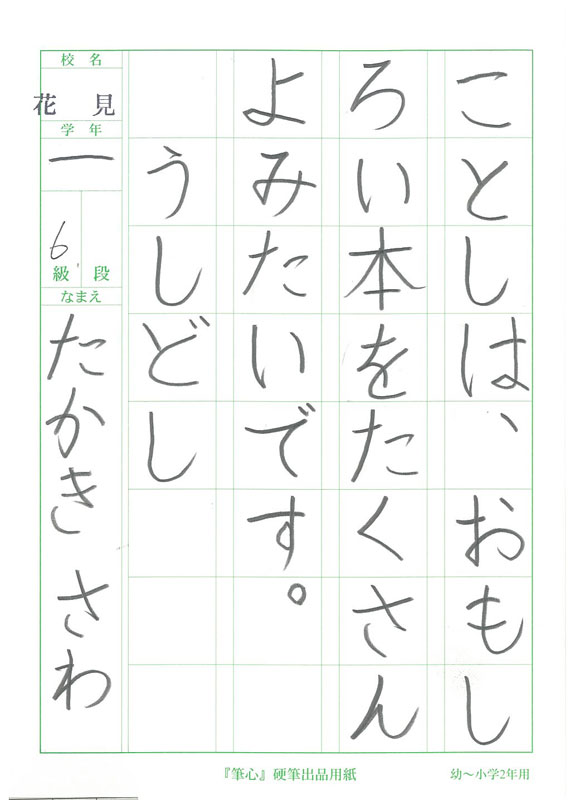 ことしは、おもし
ろい本をたくさん
よみたいです。
うしどし
校名
花見
学年
一
6
級 段
なまえ
たかき さわ
『筆心』硬筆出品用紙
幼～小学2年用